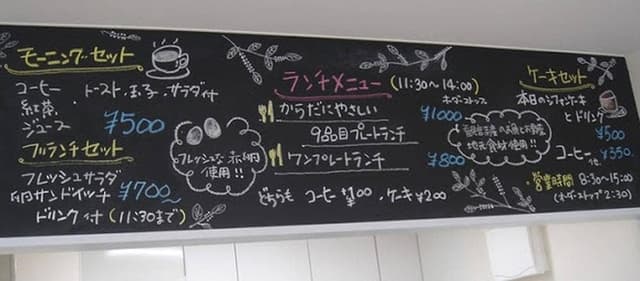 モーニングセット
コーヒー トースト、玉子、サラダ付
紅茶、
ジュース ¥500
ランチセット
フレッシュサラダ
サンドイッチ ¥700〜
ドリンク付 (11:30まで)
フレッシュな
使用!!
ランチメニュー (11:30〜14:00)
オーダーストップ
からだにやさしい
9品目プレートランチ ¥1000
ワンプレートランチ ¥800
どちらも コーヒー ¥100、ケーキ ¥200
地元食材使用!!
ケーキセット
本日のシフォンケーキ
とドリンク
¥500
コーヒー ¥350
営業時間 8:30〜15:00
(オーダーストップ 2:30)